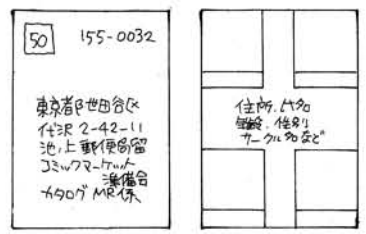 50
155-0032
東京都世田谷区
代沢 2-42-11
池ノ上郵便局留
コミックマーケット
準備会
カタログ MR係
住所、氏名
年齢、性別
サークル名など